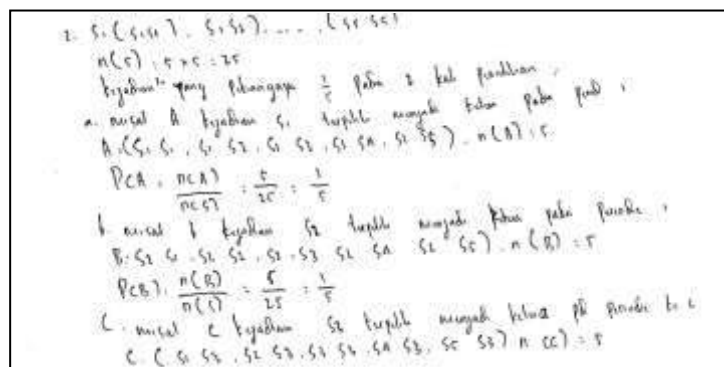 2. S. (S1 S1), S1 S2) ..... (S5 S5)
n(S) : 5 x 5 = 25
kejadian yang peluangnya 1/5 pada 2 kali pemilihan,
a. misal A kejadian S1 terpilih menjadi ketua pada
A : (S1 S1, S1 S2, S1 S3, S1 S4, S1 S5) . n(A) : 5
P(A . n(A)/n(S) : 5/25 : 1/5
b. misal b kejadian S2 terpilih menjadi ketua pada Periode 1
B: S2 S1 . S2 S2 , S2 S3 S2 S4 S2 S5) . n(B) = 5
P(B) . n(B)/n(S) : 5/25 : 1/5
C. misal C kejadian S3 terpilih menjadi ketua Periode ke
C. ( S1 S3 , S2 S3 , S3 S3, S4 S3, S5 S3) n (C) = 5